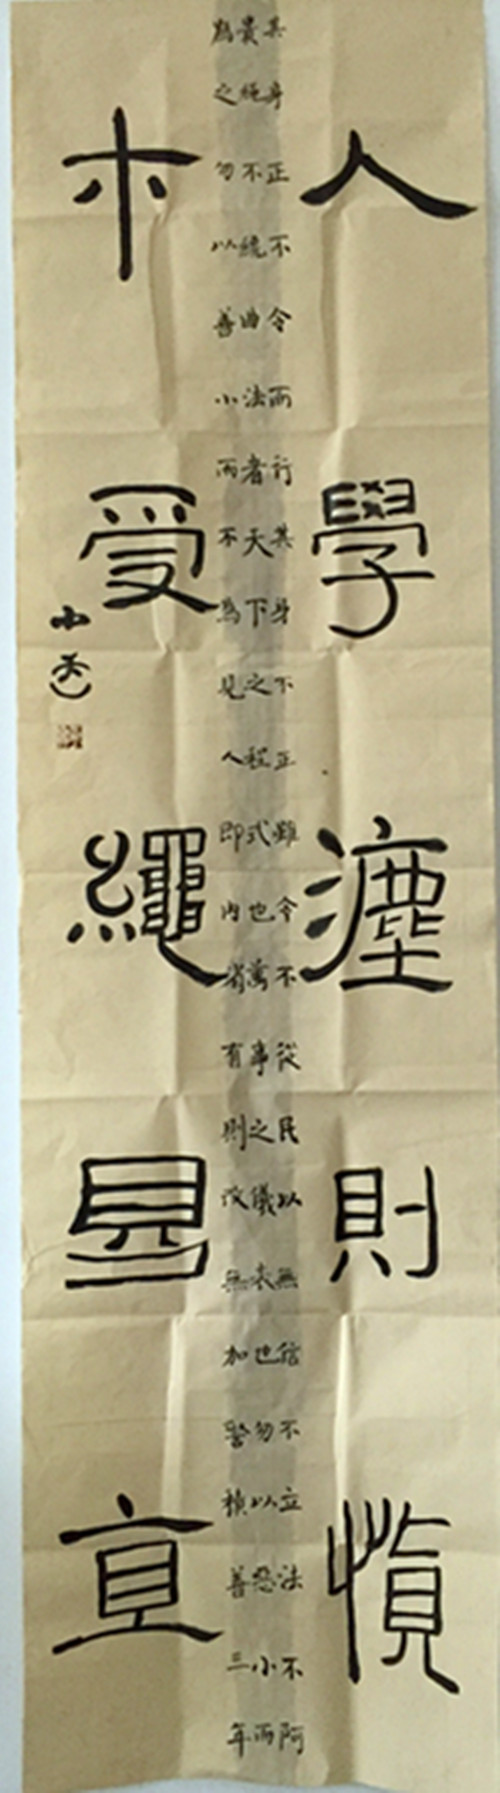 人學灋則慎
其身正不令而行其身不正雖令不從民以無信不立法不阿
貴繩不繞曲法者天下之程式也萬事之儀表也勿以惡小而
為之勿以善小而不為見人即内省有則改無加警積善三年
木受繩直
小